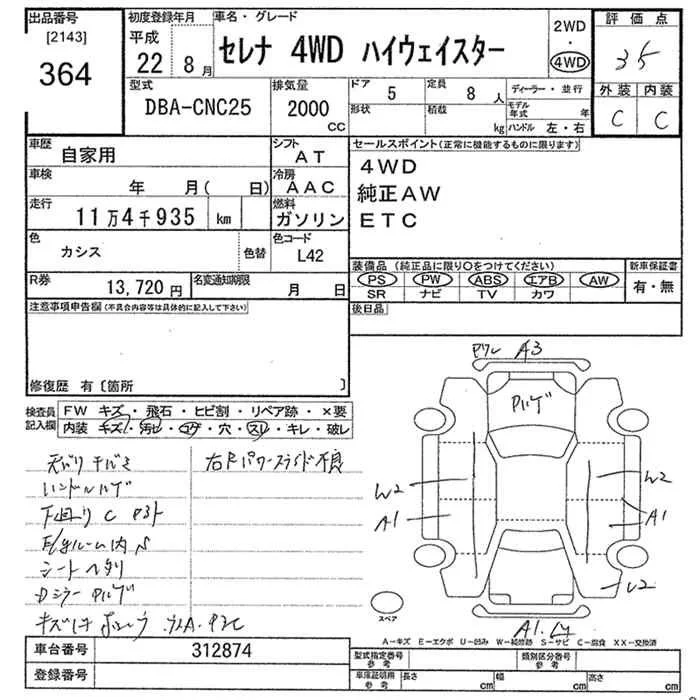 出品番号 初度登録年月 車名・グレード 2WD ・ 4WD 評価点
[2143] 平成
364 22 8月 セレナ 4WD ハイウェイスター 35
型式 排気量 ドア 定員 ディーラー・並行 外装 内装
DBA-CNC25 2000 CC 5 8人 モデル年式 年 C C
形状 積載 kg ハンドル 左・右
車歴 自家用 シフト AT セールスポイント(正常に機能するものに限ります)
車検 年 月( 日) 冷房 AAC 4WD
走行 11万4千935 km 燃料 ガソリン 純正AW
ETC
色 カシス 色替 色コード L42
装備品(純正品に限り○をつけてください) 新車保証書
R券 13,720円 名変通知期限 月 日 PS PW ABS エアB AW 有・無
SR ナビ TV カワ
注意事項申告欄(不具合内容等は具体的に記入して下さい) 後日品
修復歴 有〔箇所 〕
検査員記入欄 FW キズ・飛石・ヒビ割・リペア跡・×要
内装 キズ・汚ヒ・コゲ・穴・スレ・キレ・破レ
右Fパワースライド不良
ハンドルハゲ
下回り C
シートヘタリ
A3
W2 W2
A1 A1
U2
スペア
A1
A-キズ E-エクボ U-凹み W-補修跡 S-サビ C-腐食 XX-交換済
車台番号 312874 型式指定番号 参考 類別区分番号 参考
登録番号 車庫証明用 参考 長さ cm 幅 cm 高さ cm